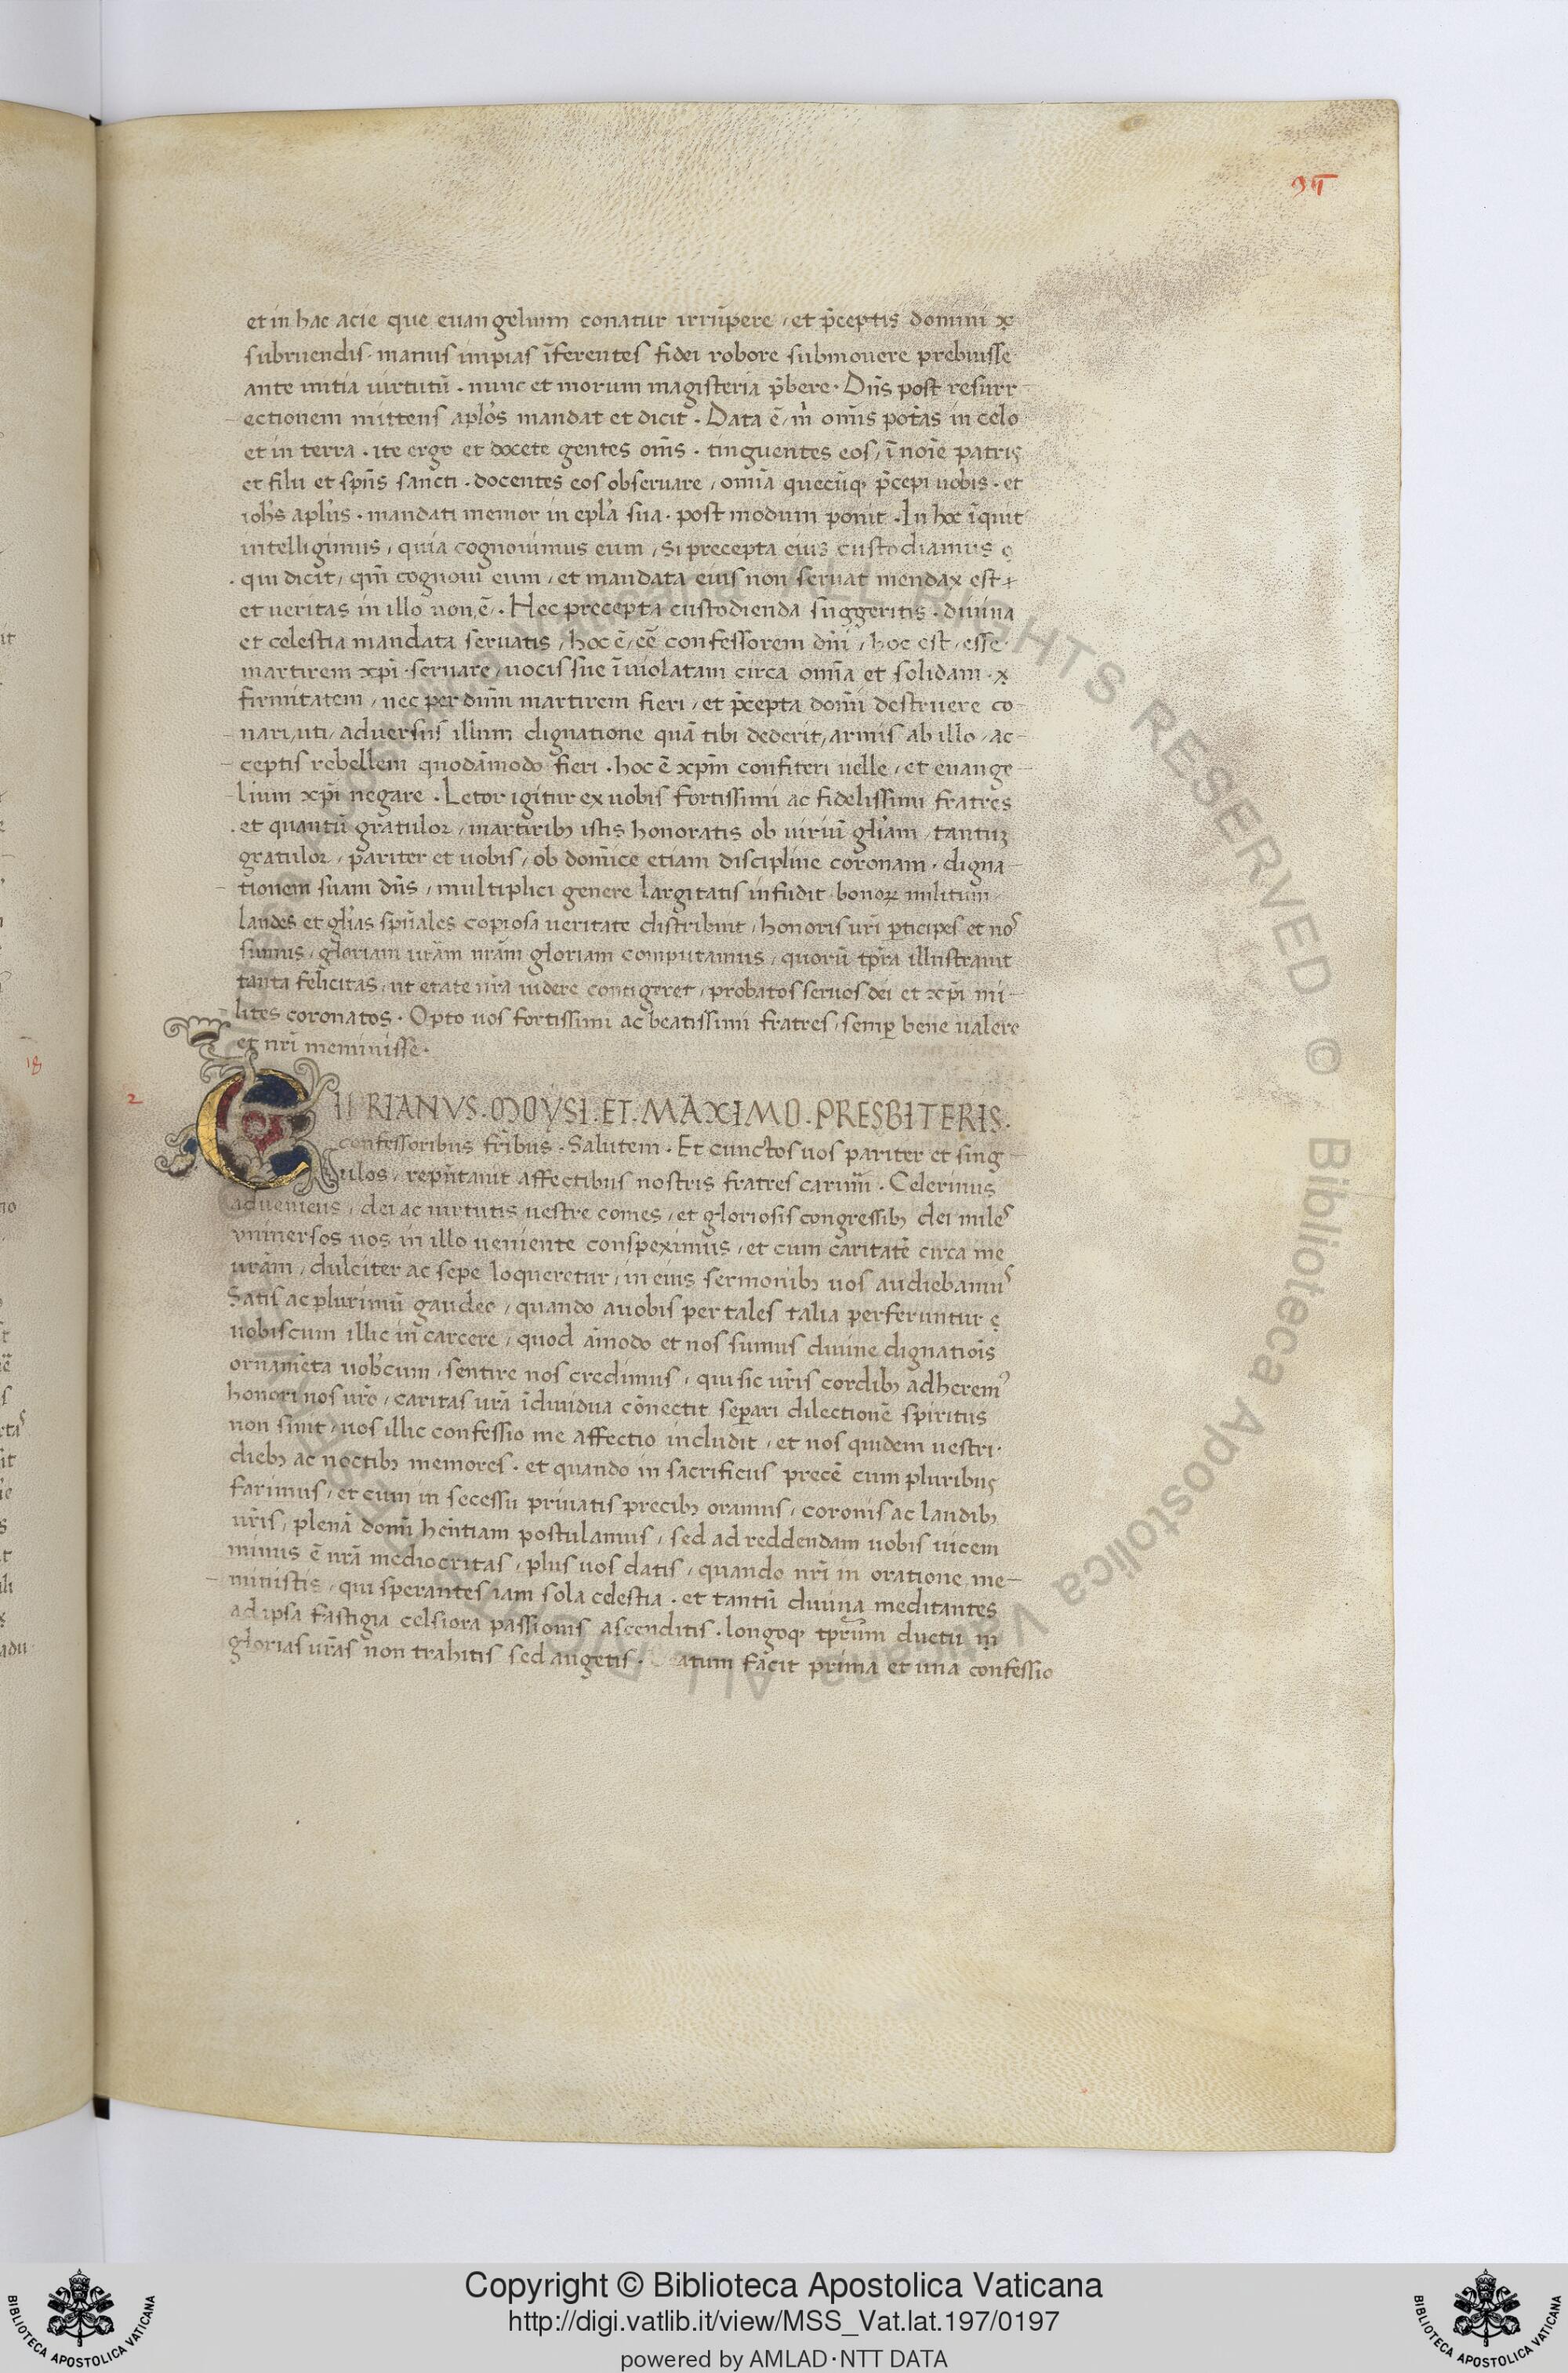 97
et in hac acie que euangelium conatur irrũpere / et p̃ceptis domini x
subruendis · manus impias ĩferentes fidei robore submouere prebuisse
ante initia uirtutũ · nunc et morum magisteria p̃bere · Dñs post resurr
ectionem mittens aplõs mandat et dicit · Data ẽ / m̃ om̃is potãs in celo
et in terra · ite ergo et docete gentes om̃s · tinguentes eos / ĩ noĩe patris
et filii et spũs sancti · docentes eos obseruare / omĩa quecũq p̃cepi uobis · et
ioh̃s aplũs · mandati memor in eplã sua · post modum ponit · In hoc ĩquit
intelligimus / quia cognouimus eum / si precepta eius custodiamus
· qui dicit / qm̃ cognoui eum / et mandata eius non seruat mendax est
et ueritas in illo non ẽ · Hec precepta custodienda suggeritis · diuina
et celestia mandata seruatis / hoc ẽ / eẽ confessorem dñi / hoc est / esse
martirem xp̃i · seruare / uocis sue ĩuiolatam circa omĩa et solidam · x
firmitatem / nec per dñm martirem fieri / et p̃cepta domĩ destruere co
nari / uti / aduersus illum dignatione quã tibi dederit / armis ab illo / ac-
ceptis rebellem quodãmodo fieri · hoc ẽ xp̃m confiteri uelle / et euange-
lium xp̃i negare · Letor igitur ex uobis fortissimi ac fidelissimi fratres
· et quantũ gratulor / martirib; istis honoratis ob uiriũ glĩam / tantuz
gratulor / pariter et uobis / ob domĩce etiam discipline coronam · digna-
tionem suam dñs / multiplici genere largitatis infudit bonoꝝ militum
laudes et glĩas spũales copiosa ueritate distribuit / honoris uñi p̱ticipes et nos
sumus / gloriam urãm nrãm gloriam computamus / quorũ tp̃ra illustrauit
tanta felicitas / ut etate nrã uidere contigeret / probatos seruos dei et xp̃i mi-
lites coronatos · Opto uos fortissimi ac beatissimi fratres / semp̱ bene ualere
et nrĩ meminisse ·
2
CIPRIANVS · MOYSI · ET · MAXIMO · PRESBITERIS ·
confessoribus fr̃ibus · Salutem · Et cunctos uos pariter et sing-
ulos / repñtauit affectibus nostris fratres cariim̃ · Celerinus
adueniens / dei ac uirtutis uestre comes / et gloriosis congressib; dei miles
vniuersos uos in illo ueniente conspeximus / et cum caritatẽ circa me
urãm / dulciter ac sepe loqueretur / in eius sermonib; uos audiebamus
Satis ac plurimũ gaudeo / quando a uobis per tales talia perferuntur
uobiscum illic in carcere / quod ãmodo et nos sumus diuine dignatiõis
ornamẽta uob̃cum / sentire nos credimus / qui sic ur̃is cordib; adherem᾽
honori nos ur̃o / caritas urã ĩdiuidua cõnectit sep̱ari dilectionẽ spiritus
non sinit / uos illic confessio me affectio includit / et nos quidem uestri ·
dieb; ac noctib; memores · et quando in sacrificiis precẽ cum pluribus
farimus / et cum in secessu priuatis precib; oramus / coronis ac laudib;
ur̃is / plenã domĩ hẽntiam postulamus / sed ad reddendam uobis uicem
minus ẽ nrã mediocritas / plus uos datis / quando nrĩ in oratione me-
ministis / qui sperantes iam sola celestia · et tantũ diuina meditantes
ad ipsa fastigia celsiora passionis ascenditis · longoq tp̃rum ductu
glorias urãs non trahitis sed augetis · atum facit prima et una confessio
18
Copyright © Biblioteca Apostolica Vaticana
http://digi.vatlib.it/view/MSS_Vat.lat.197/0197
powered by AMLAD·NTT DATA